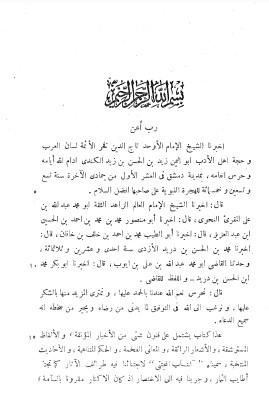 بسم الله الرحمن الرحيم
رب أعن
اخبرنا الشيخ الإمام الأوحد تاج الدين فخر الأئمة لسان العرب
وحجة اهل الأدب ابو اليمن زيد بن الحسن بن زيد الكندي ادام الله أيامه
وحرس انعامه، بمدينة دمشق في العشر الأول من جمادى الآخرة سنة تسع
وتسعين وخمسمائة للهجرة النبوية على صاحبها افضل السلام .
قال : اخبرنا الشيخ الإمام العالم الزاهد الثقة ابو محمد عبدالله بن
علي المقرئ النحوي، قال : اخبرنا أبو منصور محمد بن محمد بن احمد بن الحسين
ابن عبد العزيز، قال : اخبرنا أبو الطيب محمد بن احمد بن خلف بن خاقان، قال :
اخبرنا محمد بن الحسن بن دريد الأزدي سنة احدى وعشرين وثلاثمائة،
وحدثنا القاضي ابو محمد عبد الله بن علي بن ايوب، قال : اخبرنا ابو بكر محمد
ابن الحسن بن دريد .. واللفظ للقاضي .
قال : نحرس نعم الله عندنا بالحمد عليها، ونمتري المزيد منها بالشكر
عليها، ونرغب الى الله في التوفيق لما يدني من رضاه ويجير من سخطه انه
سميع الدعاء .
هذا كتاب يشتمل على فنون شتى من الأخبار المونقة، والألفاظ
المسترشقة، والأشعار الرائقة، والمعاني الفخمة، والحكم المتناهية، والأحاديث
المنتخبة، سميناه « المجتنى » لاجتنائنا فيه ظرائف الآثار كما تجتنى
أطايب الثمار، وجرينا فيه الى الاختصار اذ كان الاكثار مقرونا بالسآمة